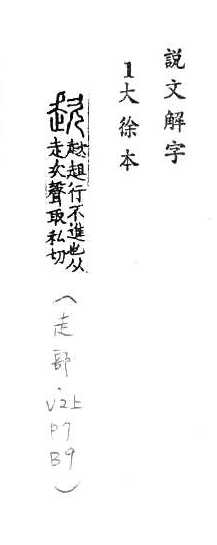 説文解字
1大徐本
趑
趑趄行不進也从
走次聲取私切
(走部．V2上P7B9)